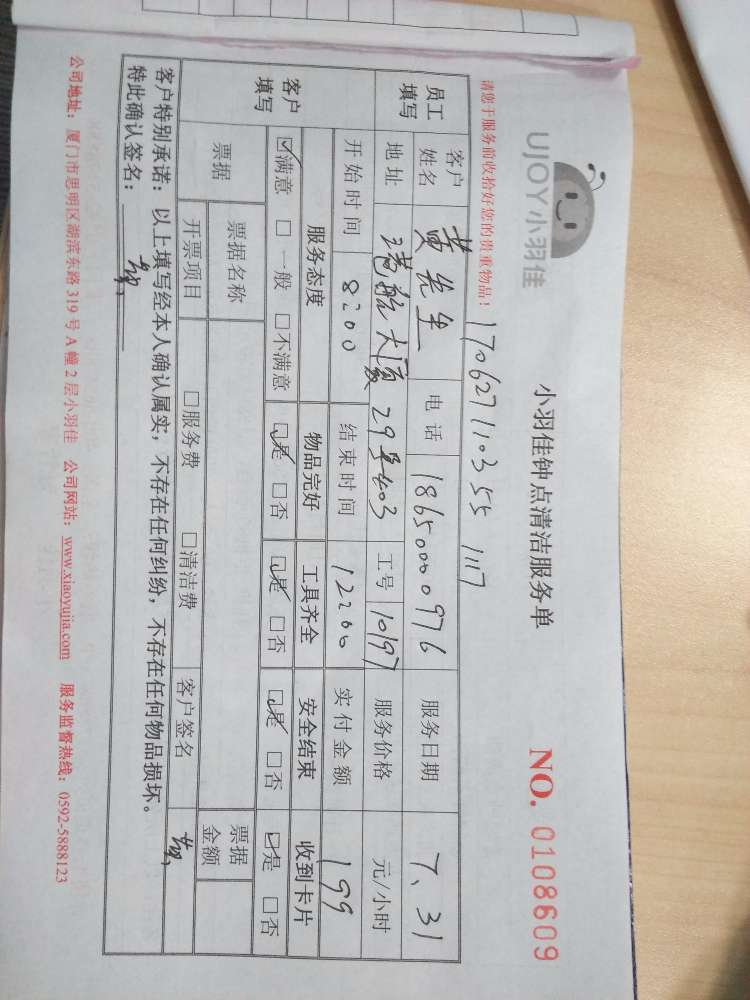 UJOY小羽佳
小羽佳钟点清洁服务单
NO. 0108609
请您于服务前收拾好您的贵重物品！
1706271103 55 1117
员工填写 客户姓名 黄先生 电话 18650000976 服务日期 7、31
地址 瑞航大厦 29 403 工号 10197 服务价格 元/小时
开始时间 8200 结束时间 12200 实付金额 199
客户填写 服务态度 物品完好 工具齐全 安全结束 收到卡片
☑满意 □一般 □不满意 ☑是 □否 ☑是 □否 ☑是 □否 ☑是 □否
票据 票据名称 票据金额
开票项目 □服务费 □清洁费 客户签名
客户特别承诺：以上填写经本人确认属实，不存在任何纠纷，不存在任何物品损坏。
特此确认签名：
公司地址：厦门市思明区湖滨东路 319 号 A 幢 2 层小羽佳 公司网站：www.xiaoyujia.com 服务监督热线：0592-5888123